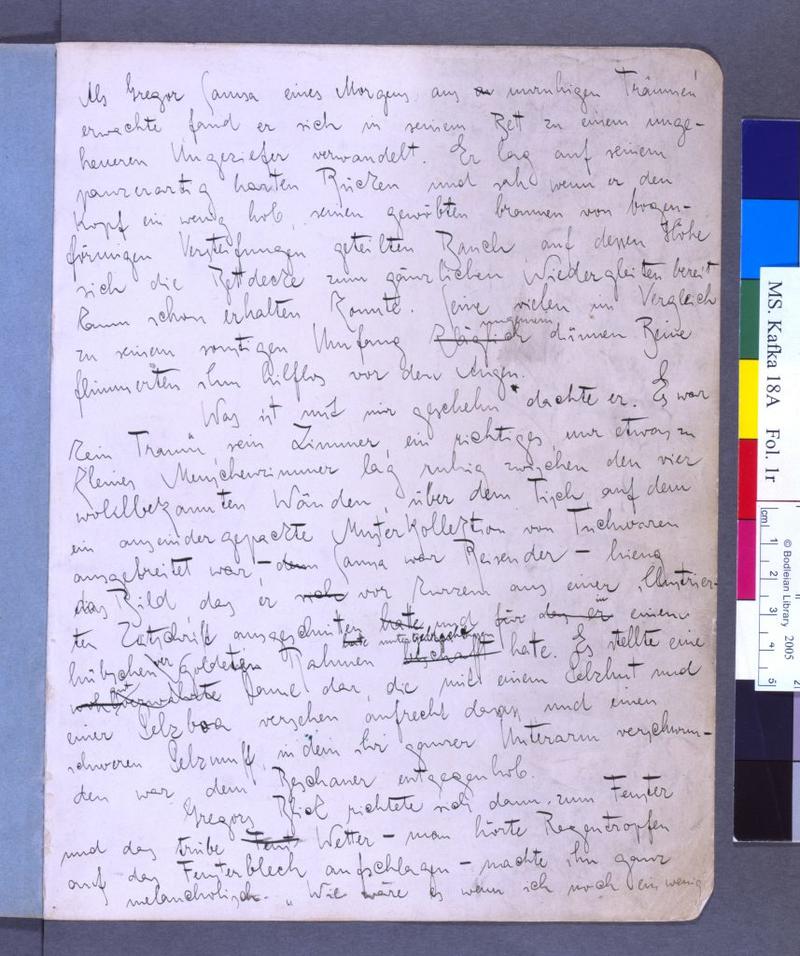 Als Gregor Samsa eines Morgens aus unruhigen Träumen
erwachte fand er sich in seinem Bett zu einem unge-
heueren Ungeziefer verwandelt. Er lag auf seinem
panzerartig harten Rücken und sah wenn er den
Kopf ein wenig hob, seinen gewölbten braunen von bogen-
förmigen Versteifungen geteilten Bauch auf dessen Höhe
sich die Bettdecke zum gänzlichen Niedergleiten bereit
kaum schon erhalten konnte. Seine vielen im Vergleich
zu seinem sonstigen Umfang kläglich dünnen Beine
flimmerten ihm hilflos vor den Augen.
Was ist mit mir geschehn dachte er. Es war
kein Traum, sein Zimmer, ein richtiges nur etwas zu
kleines Menschenzimmer lag ruhig zwischen den vier
wohlbekannten Wänden, über dem Tisch, auf dem
ein auseinandergepackte Musterkollektion von Tuchwaren
ausgebreitet war, – denn Samsa war Reisender – hieng
das Bild, das er sich vor kurzem aus einer Illustrier-
ten Zeitschrift ausgeschnitten hatte und für den er in einem
hübschen vergoldeten Rahmen hatte untergebracht hatte. Es stellte eine
Dame dar, die mit einem Pelzhut und
einer Pelzboa versehen aufrecht dasass und einen
schweren Pelzmuff, in dem ihr ganzer Unterarm verschwun-
den war dem Beschauer entgegenhob.
Gregors Blick richtete sich dann zum Fenster
und das trübe Wetter – man hörte Regentropfen
auf das Fensterblech aufschlagen – machte ihn ganz
melancholisch. „Wie wäre es wenn ich noch ein wenig
MS. Kafka 18A Fol. 1r
cm 1 2 3 4 5
© Bodleian Library 2005